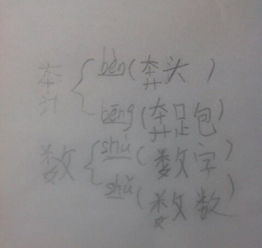 奔
bèn(奔头)
bēng(奔跑)
数
shù(数字)
shǔ(数数)